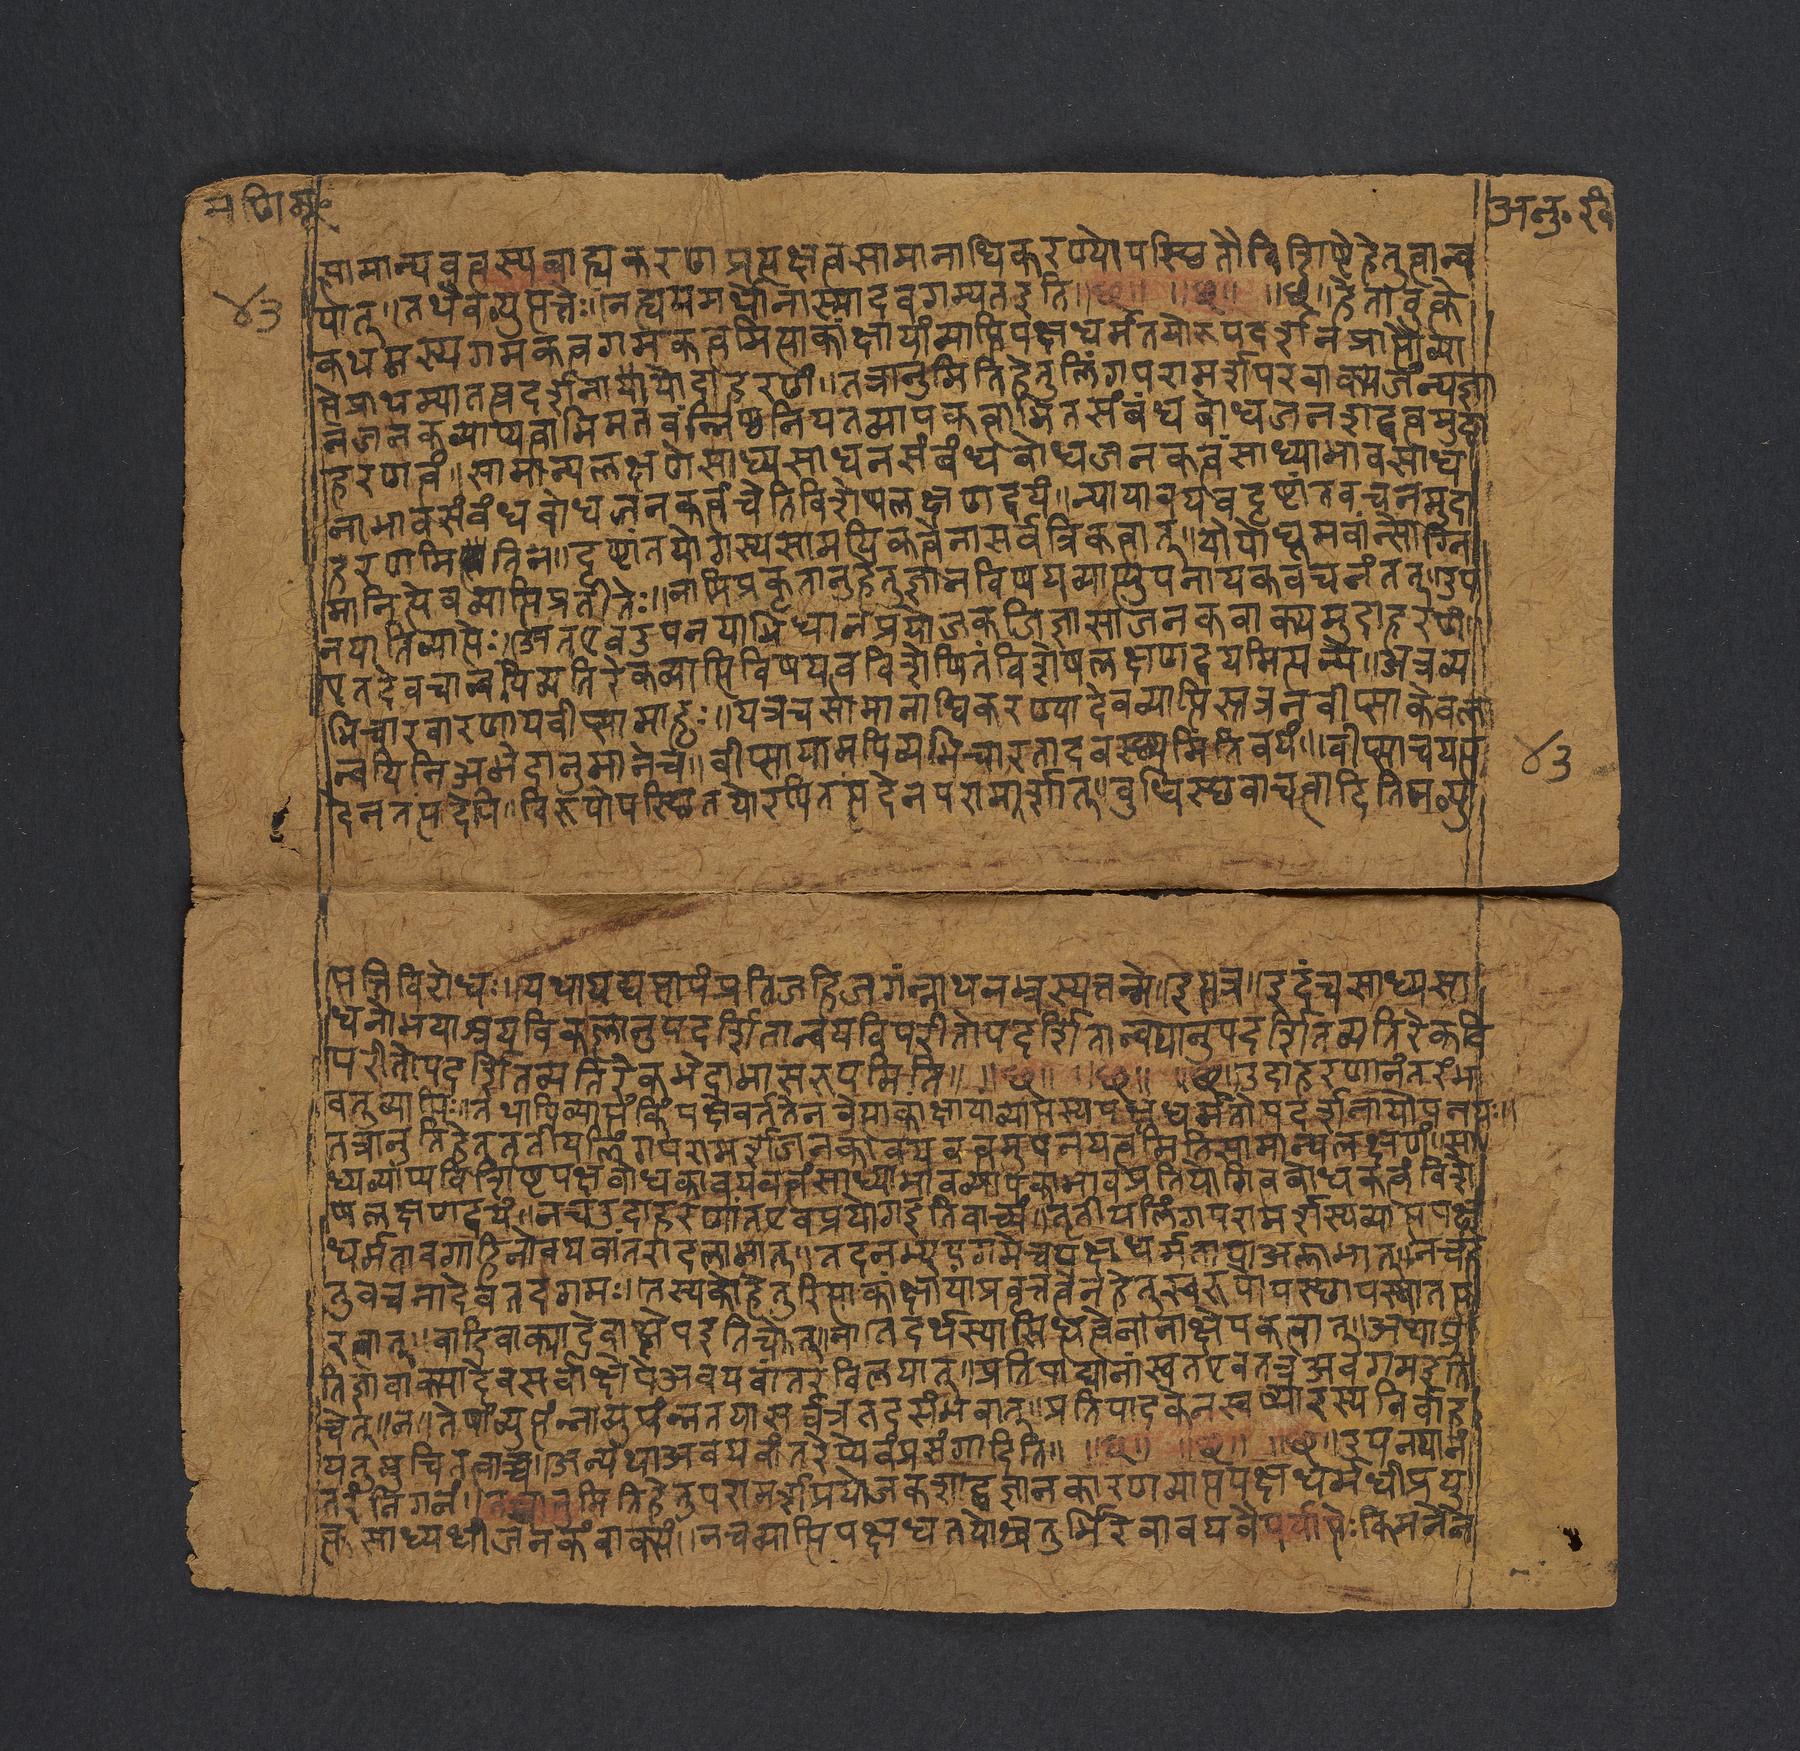 मणिमू॰
अनु॰ खं
४३
सामान्यवत्वस्यबाह्यकरणप्रत्यक्षत्वसामानाधिकरण्योपस्थितौविशिष्टेहेतुत्वान्व
यात्॥तथैवव्युत्पत्तेः॥नह्ययमर्थोनास्मादवगम्यतइति॥छ॥ ॥छ॥ ॥छ॥हेतावुक्ते
कथमस्यगमकत्वगमकत्वमित्याकांक्षायांव्याप्तिपक्षधर्मतयोरुपदर्शनप्राप्तौव्या
प्तेप्राथम्यात्तत्प्रदर्शनायायोदाहरणं॥तत्रानुमितिहेतुलिंगपरामर्शपरवाक्यजन्यज्ञा
नजनकव्याप्यत्वाभिमतवंन्निष्ठनियतव्यापकत्वाभिमतसंबंधबोधजनशब्दत्वमुदा
हरणत्वं॥सामान्यलक्षणेसाध्यसाधनसंबंधबोधजनकत्वंसाध्याभावसाध
नाभावसंबंधबोधजनकत्वंचेतिविशेषलक्षणद्वयं॥न्यायावयवदृष्टांतवचनमुदा
हरणमितिन॥दृष्टांतयोगस्यसामयिकत्वेनासर्वत्रिकत्वात्॥योयोधूमवान्सोग्नि
मानित्येवव्याप्तिप्रतीतेः॥नापिप्रकृतानुहेतुज्ञानविषयव्याप्त्युपनायकवचनंतत्॥उप
नयातिव्याप्तेः॥अतएवउपनयाभिधानप्रयोजकजिज्ञासाजनकवाक्यमुदाहरणं
एतदेवचान्वयिव्यतिरेकव्याप्तिविषयत्वविशेषितंविशेषलक्षणद्वयमित्यन्ये॥अत्रव्य
भिचारवारणायवीप्सामाहुः॥यत्रचसामानाधिकरण्यादेवव्याप्तिस्तत्रनवीप्साकेवला
न्वयिनिअभेदानुमानेच॥वीप्सायामपिव्यभिचारतादवस्थ्यमितिवयं॥वीप्साचयत्प
देनतत्पदेपि॥विरूपोपस्थितयोरपितत्पदेनपरामर्शात्॥बुद्धिस्थवाचत्वादितिनव्यु
४३
त्पत्तिविरोधः॥यथायद्यत्पापंप्रतिजहिजगंन्नाथनम्रस्यतन्मे॥इत्यत्र॥इदंचसाध्यसा
धनोभयाश्रयविकलानुपदर्शितान्वयविपरीतोपदर्शितान्वयानुपदर्शितव्यतिरेकवि
परीतोपदर्शितव्यतिरेकभेदाभासरुपमिति॥ ॥छ॥ ॥छ॥ ॥छ॥उदाहरणानंतरंभ
वतुव्याप्तिः॥तथापिव्याप्तंकिंपक्षेवर्ततेनवेत्याकांक्षायांव्याप्तस्यपक्षधर्मतोपदर्शनायोपनयः॥
तत्रानुतिहेतुतृतीयलिंगपरामर्शजनकावयवत्वमुपनयत्वमितिसामान्यलक्षणं॥सा
ध्यव्याप्यविशिष्टपक्षबोधकावयवत्वंसाध्याभावव्यापकाभावप्रतियोगिवबोधकत्वंविशे
षलक्षणद्वयं॥नचउदाहरणांतएवप्रयोगइतिवाच्यं॥तृतीयलिंगपरामर्शस्यव्याप्तपक्ष
धर्मतावगाहिनोवयवांतरादलाभात्॥तदनभ्युपगमेचपक्षधर्मतायाअलाभात्॥नचहे
तुवचनादेवतदवगमः॥तस्यकोहेतुरित्याकांक्षायाप्रवृत्तत्वेनहेतुस्वरुपोपस्थापस्थातत्प
रत्वात्॥वादिवाक्यादेवाक्षेपइतिचेत्॥न॥तदर्थस्यासिद्धत्वेनानाक्षेपकत्वात्॥अथप्र
तिज्ञावाक्यादेवसर्वाक्षेपेअवयवांतरविलयात्॥प्रतिपाद्यानांस्वतएवतत्रअवगमइति
चेत्॥न॥तेषांव्युत्पंन्नाव्युत्पंन्नतयासर्वत्रतदसंभवात्॥प्रतिपादकेनस्वव्यारस्यनिर्वाह
यतुमुचितत्वाच्च॥अन्यथाअवयवांतरेप्येवंप्रसंगादिति॥ ॥छ॥ ॥छ॥ ॥छ॥उपनयानं
तरंनिगनं॥तत्रानुमितिहेतुपरामर्शप्रयोजकशाब्दज्ञानकारणव्याप्तपक्षधर्मधीप्रयु
क्तसाध्यधीजनकंवाक्यं॥नचव्याप्तिपक्षधतयोश्चतुर्भिरेवावयवैपर्याप्तेःकिमनेन